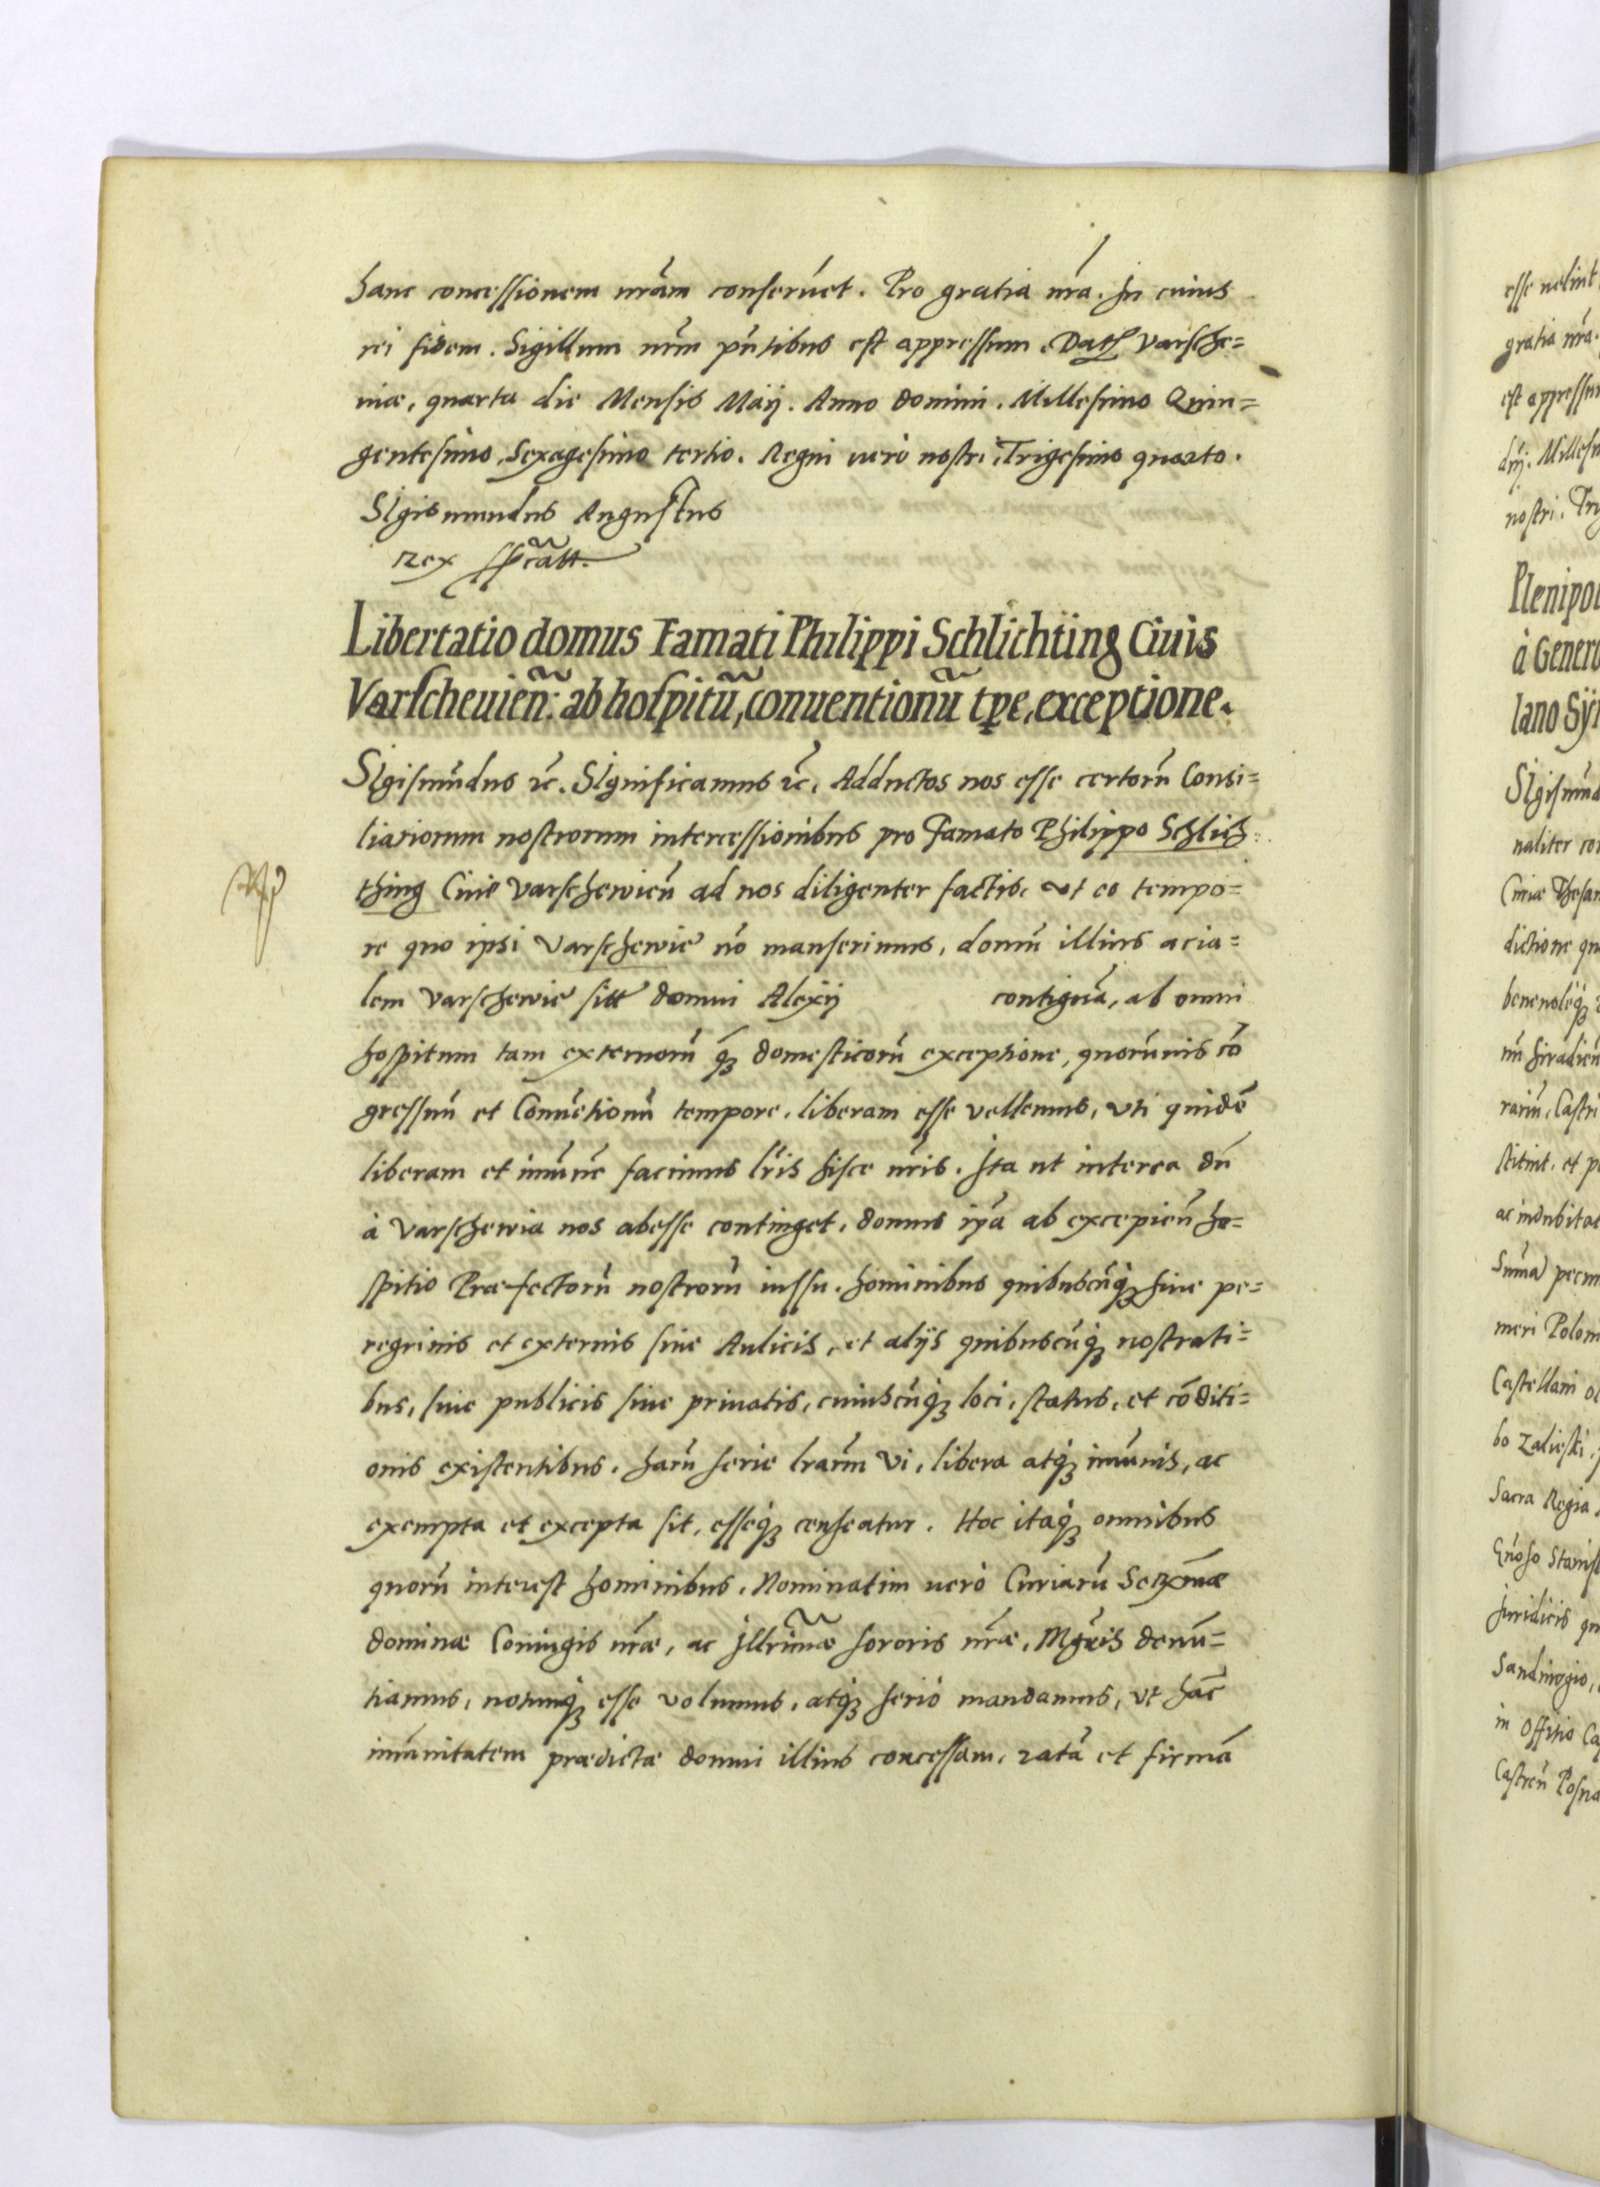 hanc concessionem nr̃am conseruet. Pro gratia nr̃a. In cuius
rei fidem. Sigillum nr̃m pñtibus est appressum. Dat̃ Varsche=
uiæ, quarta die Mensis Maij. Anno domini. Millesimo Quin=
gentesimo, Sexagesimo tertio. Regni uerò nostri, Trigesimo quarto.
SIgismundus Augustus
Rex
Libertatio domus Famati Philippi Schlichting Ciuis
Varscheuieñ: ab hospitũ, conuentionũ tp̃e, exceptione.
SIgismũdus ꝛc̃. SIgnificamus ꝛc̃, Adductos nos esse certorũ Consi=
liariorum nostrorum intercessionibus pro Famato Philippo Schlich
thing Ciue Varschewieñ ad nos diligenter factis, vt eo tempo=
re quo ipsi Varschewiæ nõ manserimus, domũ illius acia=
lem Varschewiæ sitt̃ domui Alexij contiguã, ab omni
hospitum tam externorũ q̃ꝫ domesticorũ exceptione, quorumuis cõ
gressuũ et Conuẽtionũ tempore, liberam esse vellemus, vti quidẽ
liberam et imũnẽ facimus lr̃is hisce nr̃is. Ita ut interea dũ
à Varschewia nos abesse continget, domus ip̃a ab excepieñ ho=
spitio Præfectorũ nostrorũ iussu, hominibus quibuscũqꝫ siue pe=
regrinis et externis siue Aulicis, et alijs quibuscũqꝫ nostrati=
bus, siue publicis siue priuatis, cuiuscũqꝫ loci, status, et cõditi=
onis existentibus, harũ serie lrarũm vi, libera atqꝫ imũnis, ac
exempta et excepta sit, esseqꝫ censeatur. Hoc itaqꝫ omnibus
quorũ interest hominibus, Nominatim uerò Curiarũ Serẽmæ
dominæ Coniugis nr̃æ, ac Illrimæ sororis nr̃æ, Mg̃ris denũ=
tiamus, notumqꝫ esse volumus, atqꝫ seriò mandamus, vt hãc
imũnitatem prædictæ domui illius concessam, ratã et firmã
esse uelint
gratia nr̃a.
est appressum
nostri.
à Genero
naliter
dictione
Castri
Suma
meri Polon
Castellani
bo Zalieski
Sacra Regia
in Offitio
Castreñ Posna